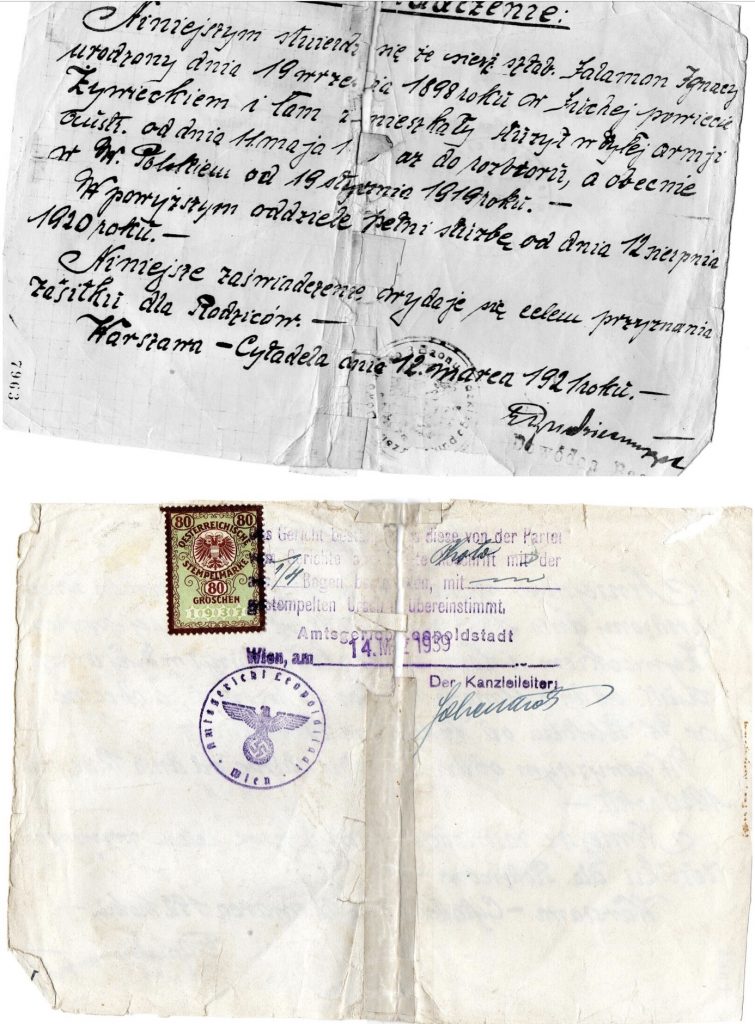 Niniejszym stwierdza się że sierż. sztab. Salaman Ignacy
urodzony dnia 19 września 1898 roku w Suchej powiecie
Żywieckiem i tam zamieszkały służył w byłej armji
austr. od dnia 11. maja aż do rozbioru, a obecnie
w W. Polskiem od 19 stycznia 1919 roku. —
W powyższym oddziele pełni służbę od dnia 12 sierpnia
1920 roku. —
Niniejsze zaświadczenie wydaje się celem przyznania
zasiłku dla Rodziców. —
Warszawa – Cytadela dnia 12. marca 1921 roku. —
7963
80 80
OESTERREICHISCHE
STEMPELMARKE
80
GROSCHEN
Gericht diese von der Partei
Gerichte Photo mit der
1/4 Bogen mit
gestempelten übereinstimmt.
Amtsgericht Leopoldstadt
Wien, am 14. 1939
Der Kanzleileiter:
Amtsgericht Leopoldstadt
Wien